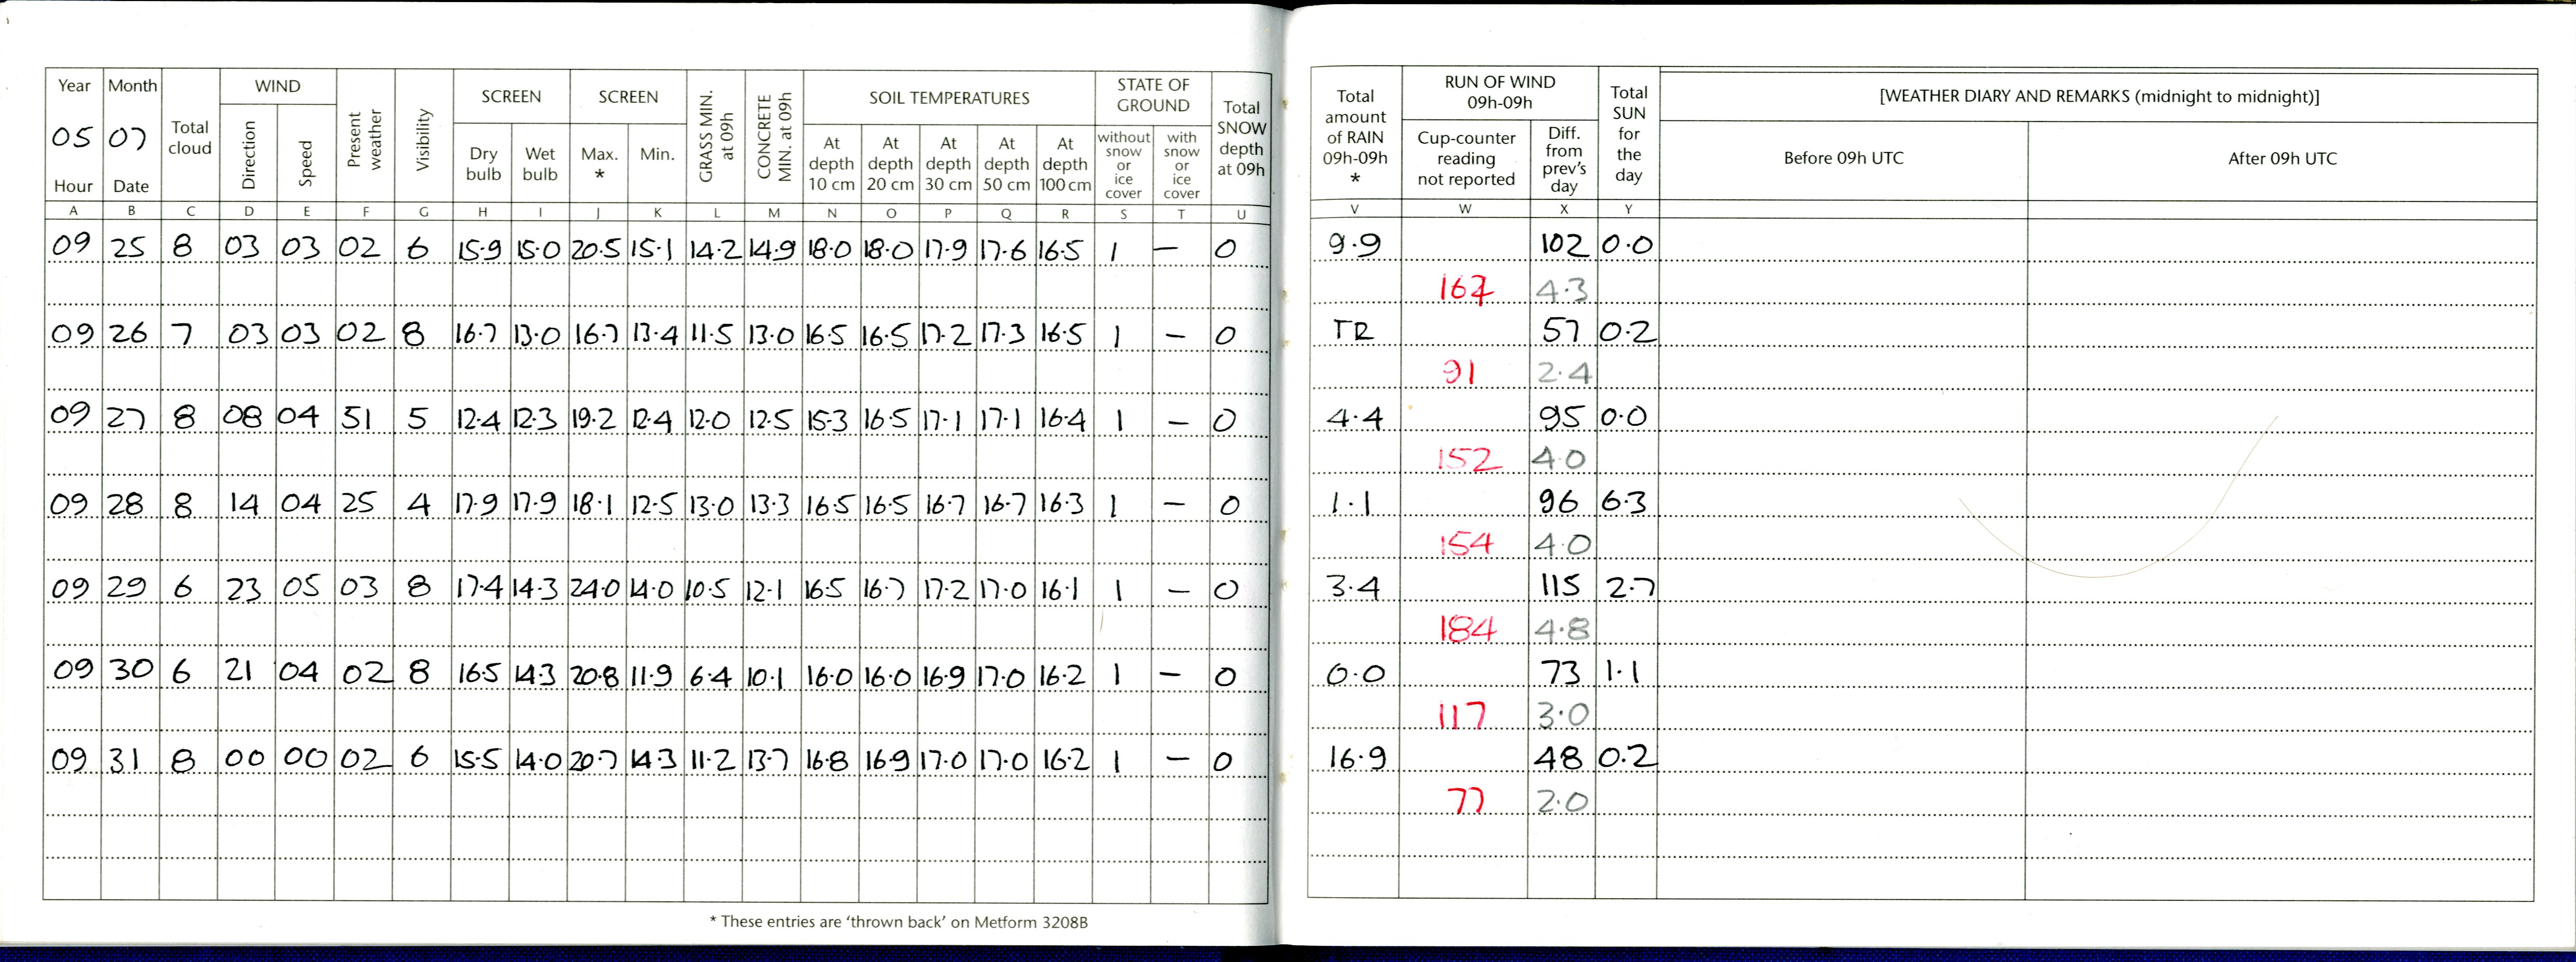 Year Month Total cloud WIND Present weather Visibility SCREEN SCREEN GRASS MIN. at 09h CONCRETE MIN. at 09h SOIL TEMPERATURES STATE OF GROUND Total SNOW depth at 09h
05 07 Direction Speed Dry bulb Wet bulb Max. * Min. At depth 10 cm At depth 20 cm At depth 30 cm At depth 50 cm At depth 100 cm without snow or ice cover with snow or ice cover
Hour Date
A B C D E F G H I J K L M N O P Q R S T U
09 25 8 03 03 02 6 15.9 15.0 20.5 15.1 14.2 14.9 18.0 18.0 17.9 17.6 16.5 1 — 0
09 26 7 03 03 02 8 16.7 13.0 16.7 13.4 11.5 13.0 16.5 16.5 17.2 17.3 16.5 1 — 0
09 27 8 08 04 51 5 12.4 12.3 19.2 12.4 12.0 12.5 15.3 16.5 17.1 17.1 16.4 1 — 0
09 28 8 14 04 25 4 17.9 17.9 18.1 12.5 13.0 13.3 16.5 16.5 16.7 16.7 16.3 1 — 0
09 29 6 23 05 03 8 17.4 14.3 24.0 14.0 10.5 12.1 16.5 16.7 17.2 17.0 16.1 1 — 0
09 30 6 21 04 02 8 16.5 14.3 20.8 11.9 6.4 10.1 16.0 16.0 16.9 17.0 16.2 1 — 0
09 31 8 00 00 02 6 15.5 14.0 20.7 14.3 11.2 13.7 16.8 16.9 17.0 17.0 16.2 1 — 0
* These entries are ‘thrown back’ on Metform 3208B
Total amount of RAIN 09h-09h * RUN OF WIND 09h-09h Total SUN for the day [WEATHER DIARY AND REMARKS (midnight to midnight)]
Cup-counter reading not reported Diff. from prev's day Before 09h UTC After 09h UTC
V W X Y
9.9 102 0.0
167 4.3
TR 57 0.2
91 2.4
4.4 95 0.0
152 4.0
1.1 96 6.3
154 4.0
3.4 115 2.7
184 4.8
0.0 73 1.1
117 3.0
16.9 48 0.2
77 2.0